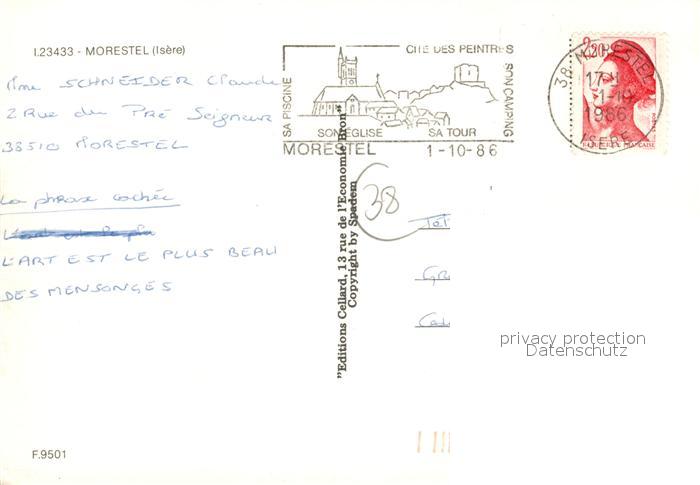 I.23433 - MORESTEL (Isère)
Mme SCHNEIDER Claude
2 Rue du Pré Seigneur
38510 MORESTEL
La phrase cachée
L'ART EST LE PLUS BEAU
DES MENSONGES
F.9501
SA PISCINE
CITÉ DES PEINTRES
SON CAMPING
SON EGLISE SA TOUR
MORESTEL 1-10-86
38 MORESTEL
17 H
1-10
1986
ISERE
2,20
"Editions Cellard, 13 rue de l'Economie Bron"
Copyright by Spadem
38
Tél
GR
privacy protection
Datenschutz